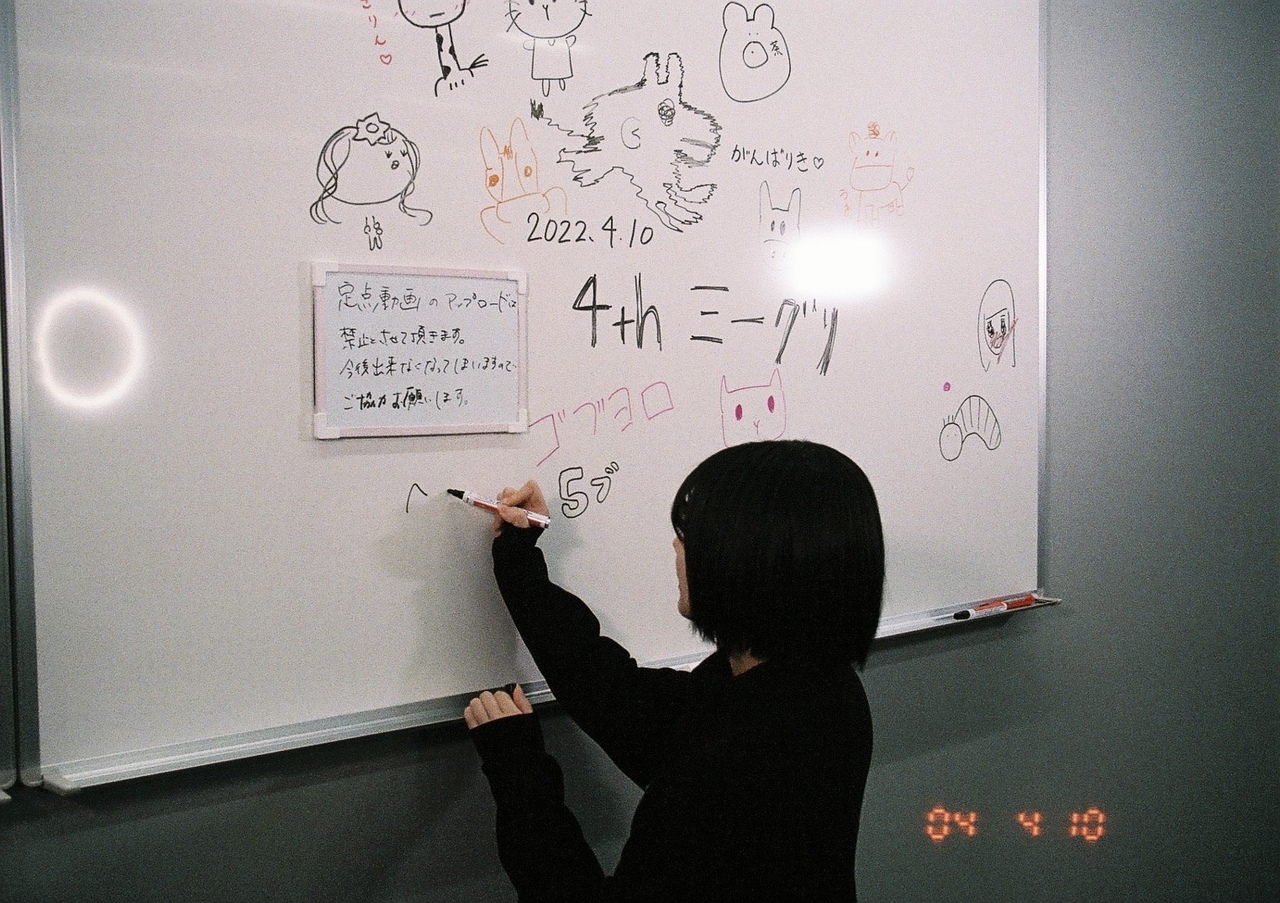 きりん♡
茶
がんばりき♡
2022.4.10
4th ミーグリ
定点動画のアップロードは
禁止とさせて頂きます。
今後出来なくなってしまいますので
ご協力お願いします。
ゴブヨロ
5ブ
04 4 10